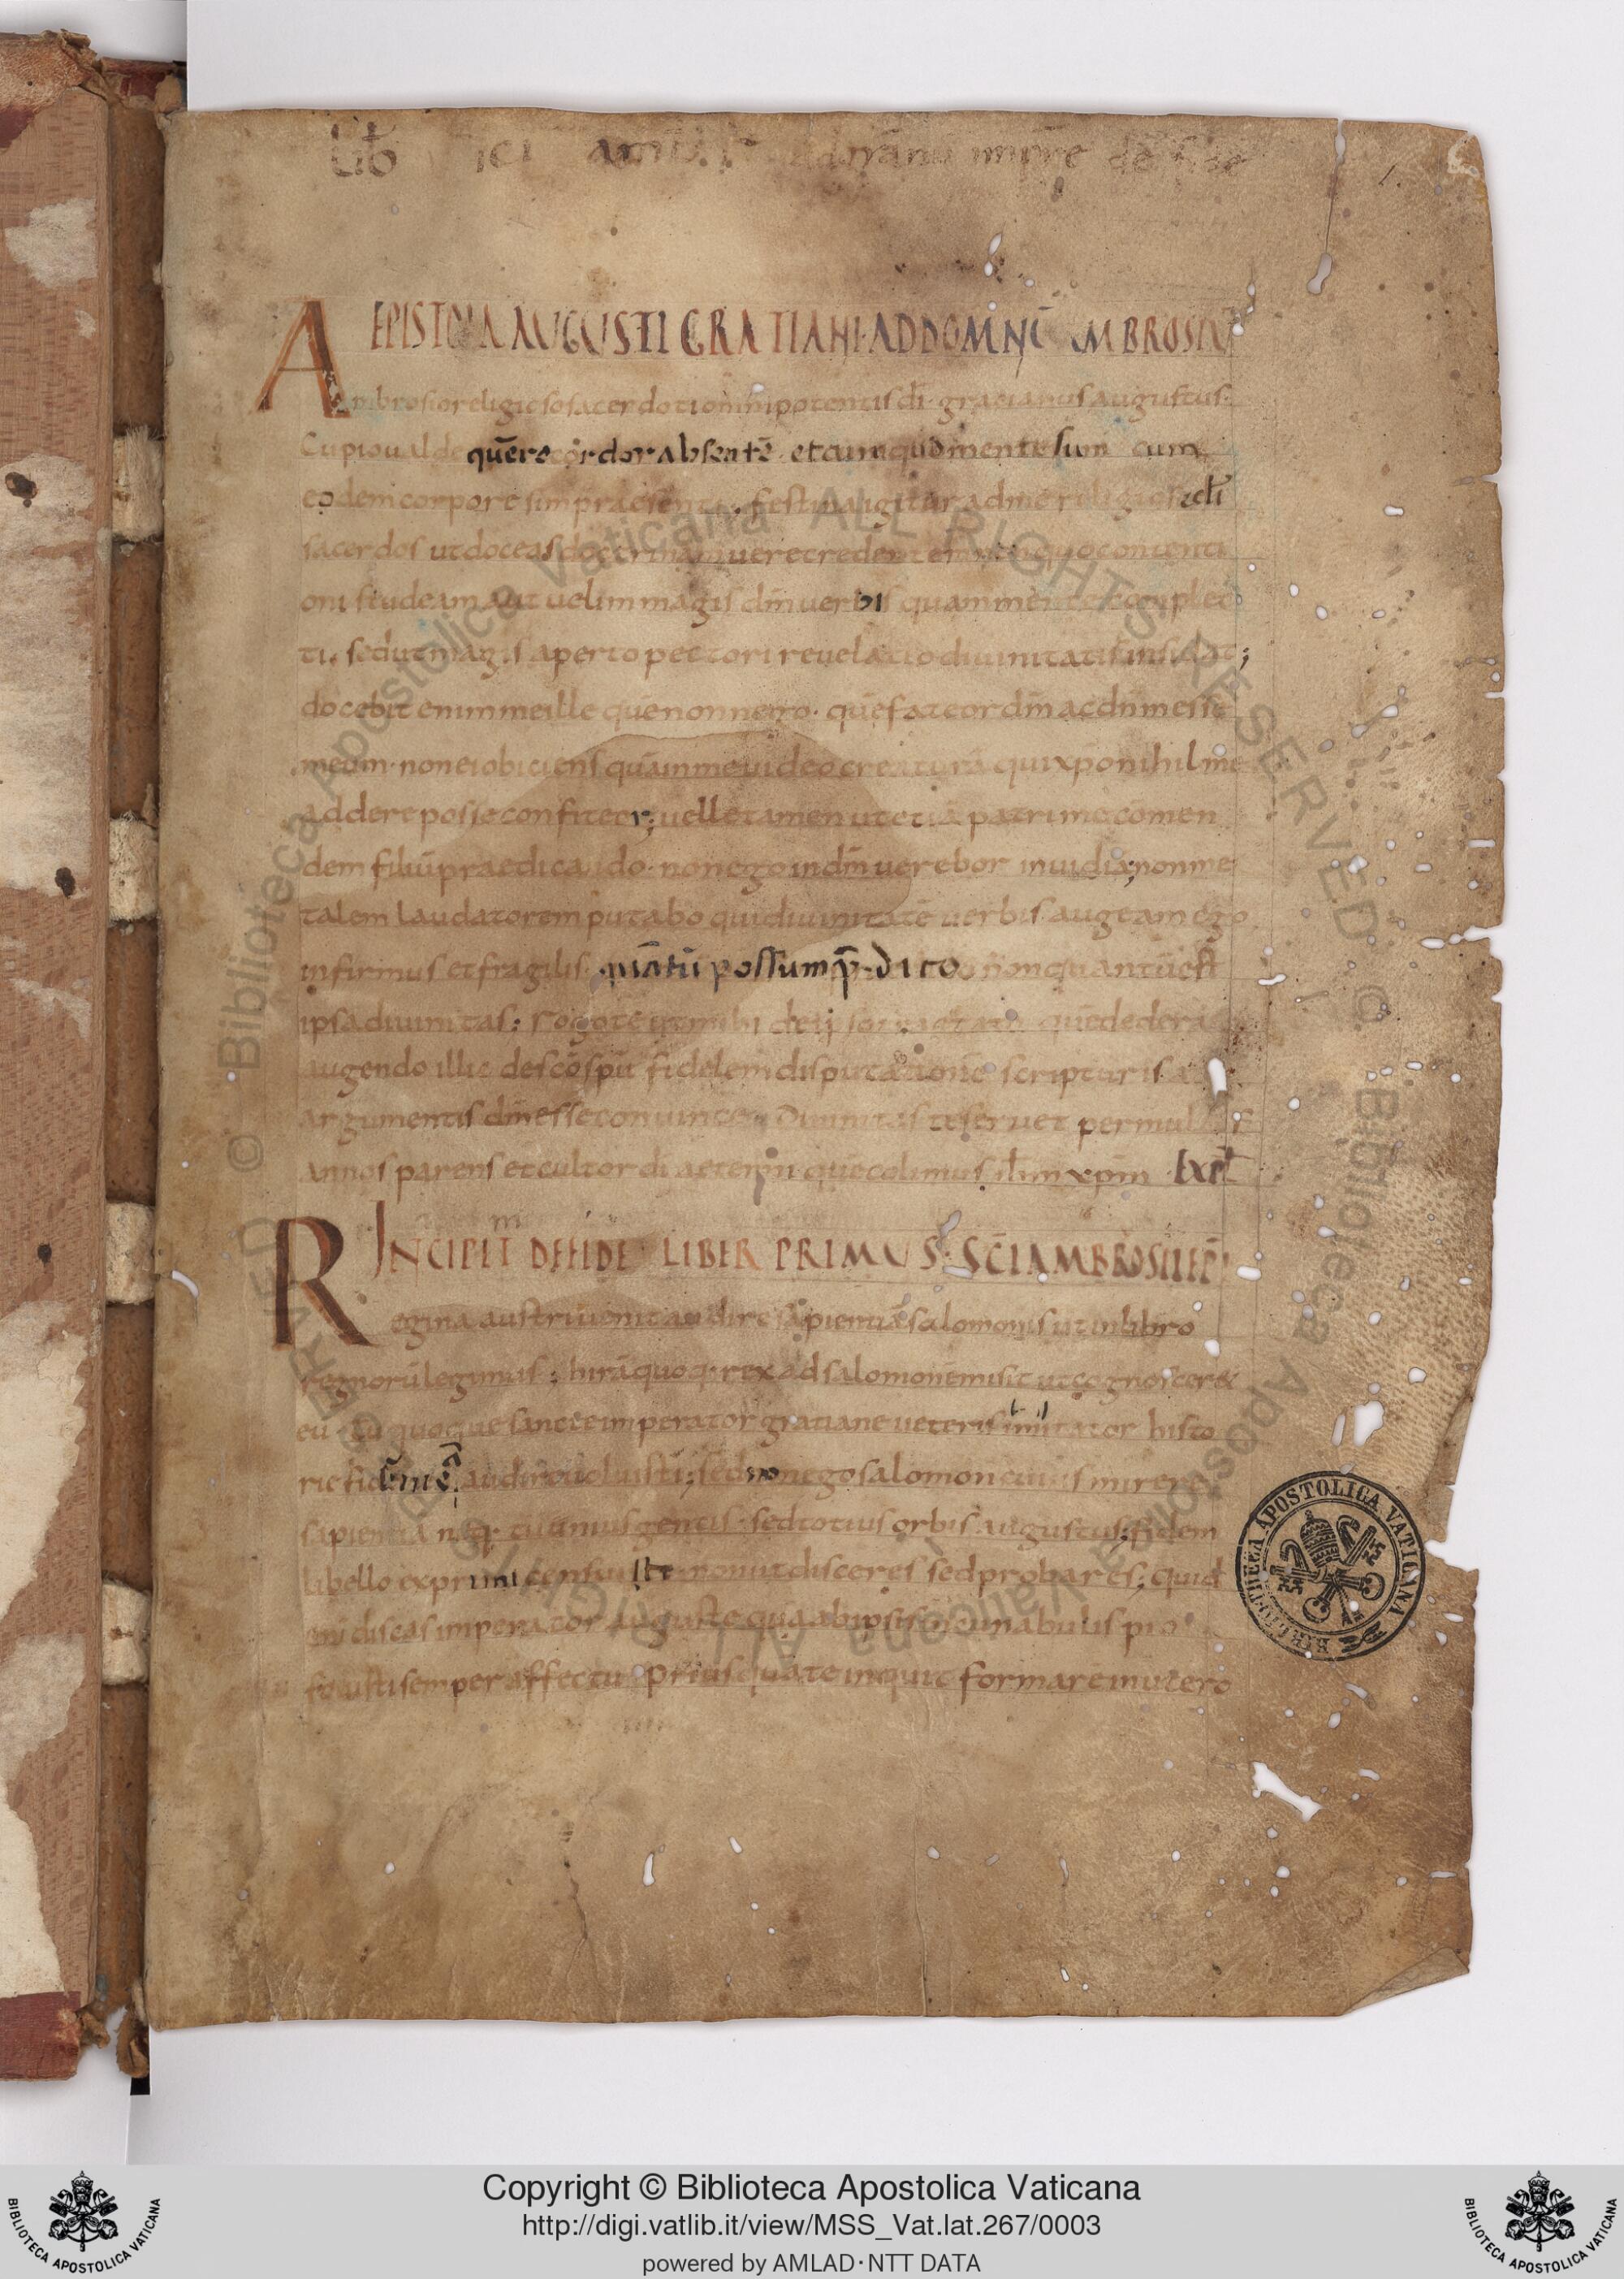 Lib sci amb
EPISTOLA AUGUSTI GRATIANI · AD DOMNŪ AMBROSIŪ
Ambrosio religioso sacerdoti omnipotentis dī · gratianus augustus ·
Cupio ualde quē recordor absentē · et cum quo mente sum cum
eodem corpore sim praesenti ; festina igitur ad me religiose dī
sacerdos ut doceas doctrinam uere credentem
oni studeam aut uelim magis dm̄ uerbis quam mente complec
ti . sed ut magis aperto pectori reuelatio diuinitatis insidat ;
docebit enim me ille quē non nego · quē fateor dm̄ ac dn̄m esse
meum · non ei obiciens quam in me uideo creaturā qui xpo nihil me
addere posse confiteor ; uelle tamen ut etiā patri me cōmen
dem filiū praedicando · non ego in dō uerebor inuidiā ; non me
talem laudatorem putabo qui diuinitatē uerbis augeam ego
infirmus et fragilis · quātū possum p̄dico non quantū est
ipsa diuinitas ; rogo te ut mihi des ipsum tractatū quē dederas
augendo illic de scō spū fidelem disputationē scripturis a
argumentis dm̄ esse conuince ; Diuinitas te seruet per multos
annos parens et cultor dī aeterni quē colimus ih̄m xp̄m · Expl̄
INCIPIT DE FIDE LIBER PRIMUS · SC̄I AMBROSII EP̄I
Regina austri uenit audire sapientiā salomonis ut in libro
regnorū legimus ; hirā quoq· rex ad salomonē misit ut cognosceret
eū · tu quoque sancte imperator gratiane ueteris imitator histo
rie fidē meā audire uoluisti ; sed non ego salomon cuius mirere
sapientiā neq· tu unius gentis · sed totius orbis augustus ; fidem
libello exprimi censuisti non ut disceres sed probares ; quid
enī discas imperator auguste quā ab ipsis incunabulis pio
fouisti semper affectu Prius quā te inquit formarē in utero
BIBLIOTHECA APOSTOLICA VATICANA
© Biblioteca Apostolica Vaticana ALL RIGHTS RESERVED © Biblioteca Apostolica Vaticana ALL RIGHTS RESERVED
Copyright © Biblioteca Apostolica Vaticana
http://digi.vatlib.it/view/MSS_Vat.lat.267/0003
powered by AMLAD · NTT DATA
BIBLIOTECA APOSTOLICA VATICANA
BIBLIOTECA APOSTOLICA VATICANA